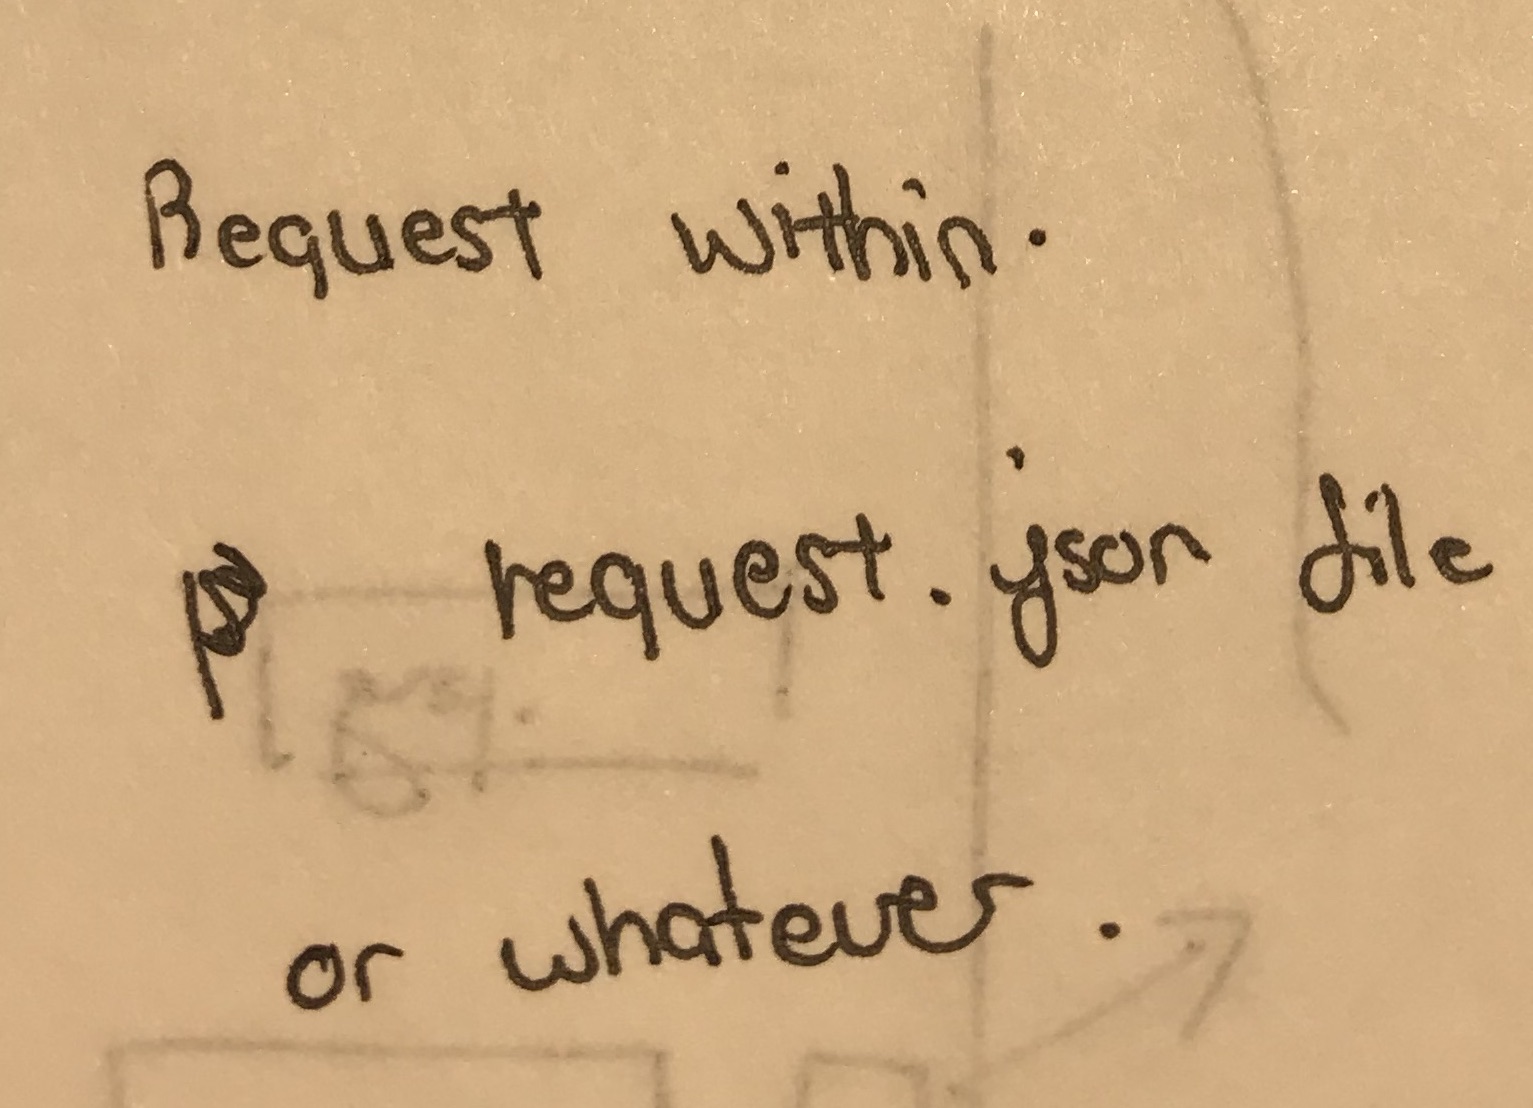 Request within.
request.json file
or whatever.